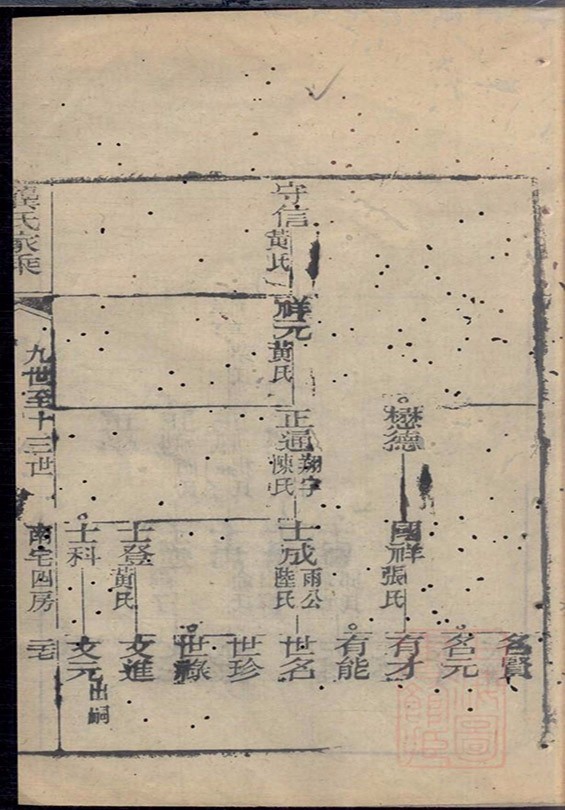 守信 黃氏
祥元 黃氏
懋德
正通 翔宇 陳氏
國祥 張氏
士成 雨公 陸氏
士登 黃氏
士科
名賢
名元
有才
有能
世名
世珍
世祿
文進
文元 出嗣
龔氏家乘
九世至十三世
南宅四房